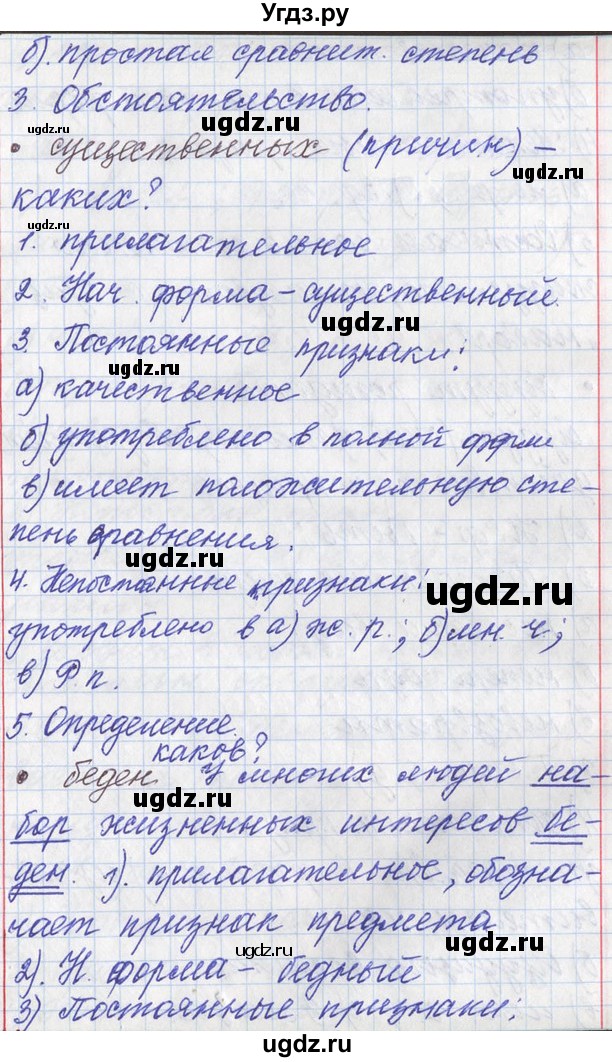 Угдз.ру
б). простая сравнит. степень
3. Обстоятельство.
ugdz.ru
ugdz.ru
• существенных (причин) –
ugdz.ru
каких?
ugdz.ru
1. прилагательное
2. Нач. форма – существенный.
ugdz.ru
3. Постоянные признаки:
ugdz.ru
а) качественное
б) употреблено в полной форме
в) имеет положительную сте-
пень сравнения.
ugdz.ru
4. Непостоянные признаки:
ugdz.ru
употреблено в а) ж. р.; б) мн. ч.;
в) Р. п.
ugdz.ru
5. Определение.
каков?
• беден У многих людей на-
ugdz.ru
бор жизненных интересов бе-
ден. 1). прилагательное, обозна-
чает признак предмета
ugdz.ru
ugdz.ru
2). Н. форма – бедный
3) Постоянные признаки:
ugdz.ru